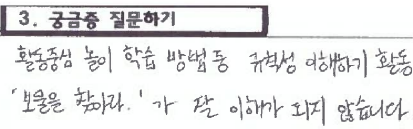 3. 궁금증 질문하기
활동중심 놀이 학습 방법 중 규칙성 이해하기 활동
'보물을 찾아라.' 가 잘 이해가 되지 않습니다